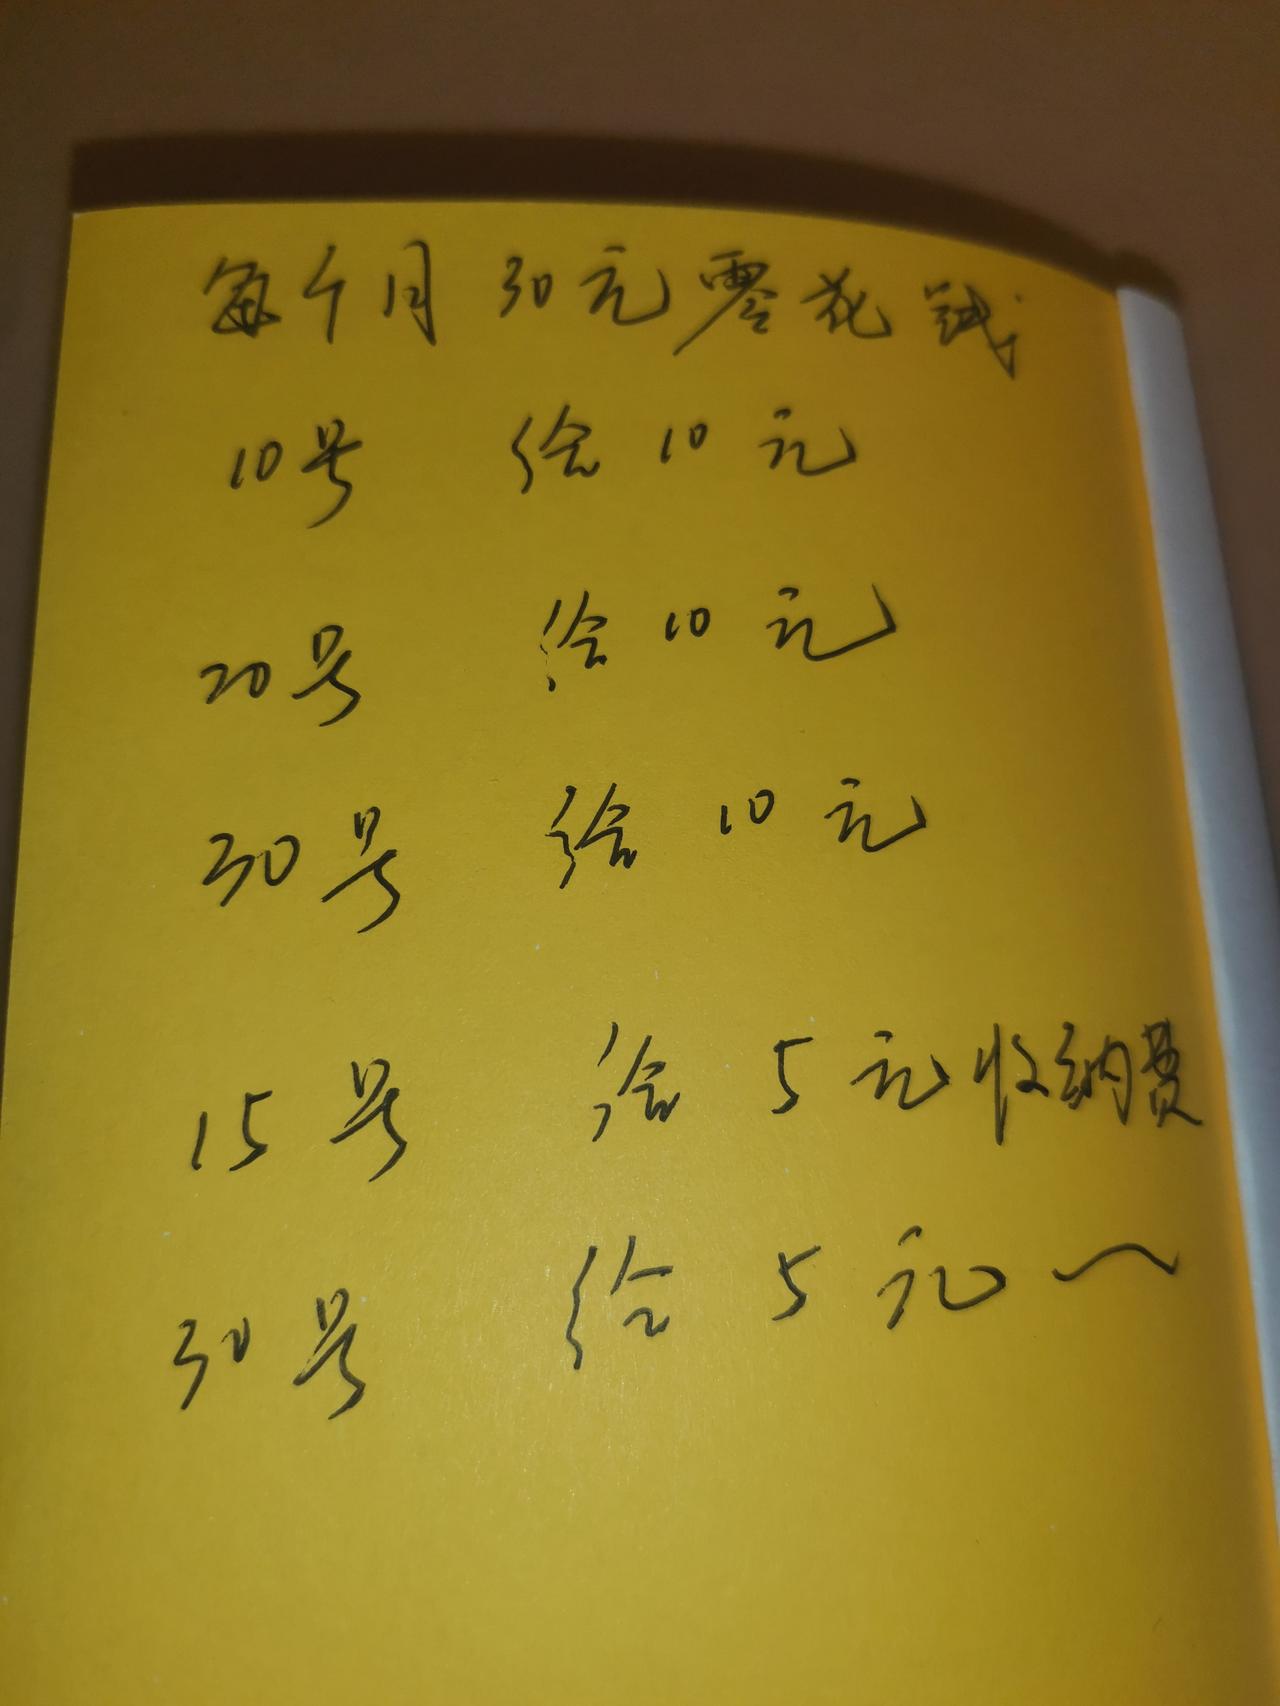 每个月 30元零花钱
10号 给10元
20号 给10元
30号 给10元
15号 给5元收纳费
30号 给5元~